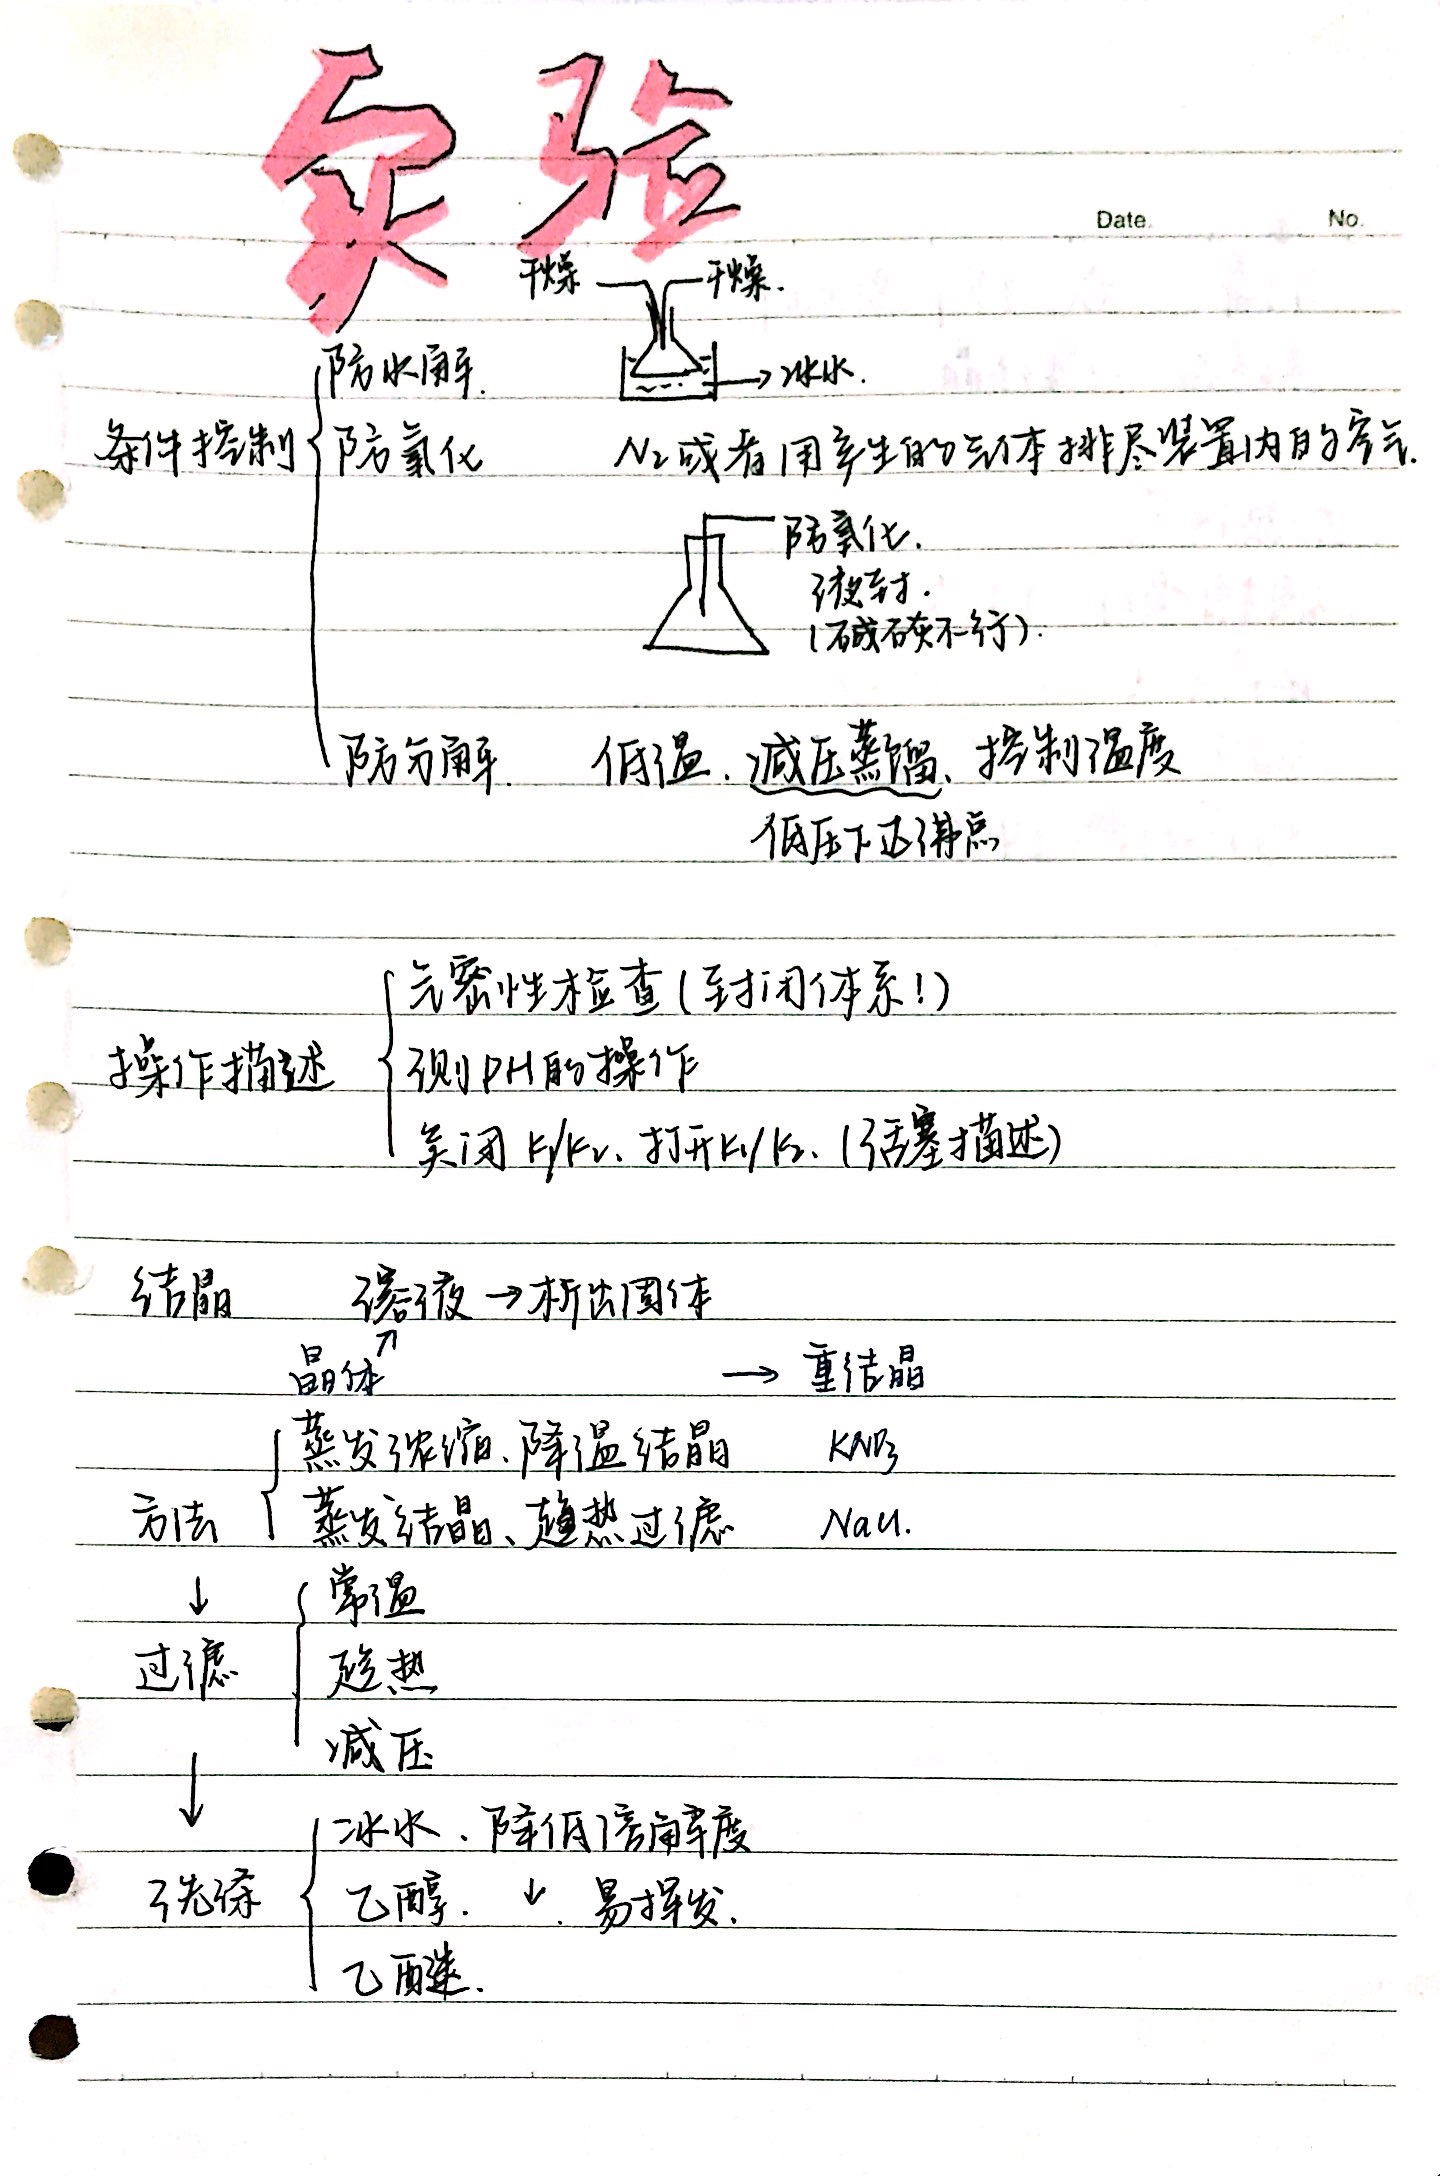 实验
Date. No.
干燥 干燥.
防水解. →冰水.
条件控制 防氧化 N₂或者用产生的气体排尽装置内的空气.
防氧化.
液封.
(碱石灰不行).
防分解. 低温、减压蒸馏、控制温度
低压下达沸点
气密性检查(封闭体系!)
操作描述 测PH的操作
关闭K₁/K₂、打开K₁/K₂、(活塞描述)
结晶 溶液→析出固体
晶体↗ → 重结晶
蒸发浓缩、降温结晶 KNO₃
方法 蒸发结晶、趁热过滤 NaCl.
↓ 常温
过滤 趁热
↓ 减压
冰水、降低溶解度
洗涤 乙醇. ↓. 易挥发.
乙醚.